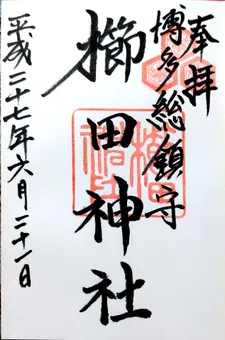 奉拝
博多総鎮守
櫛田神社
平成二十七年六月二十一日